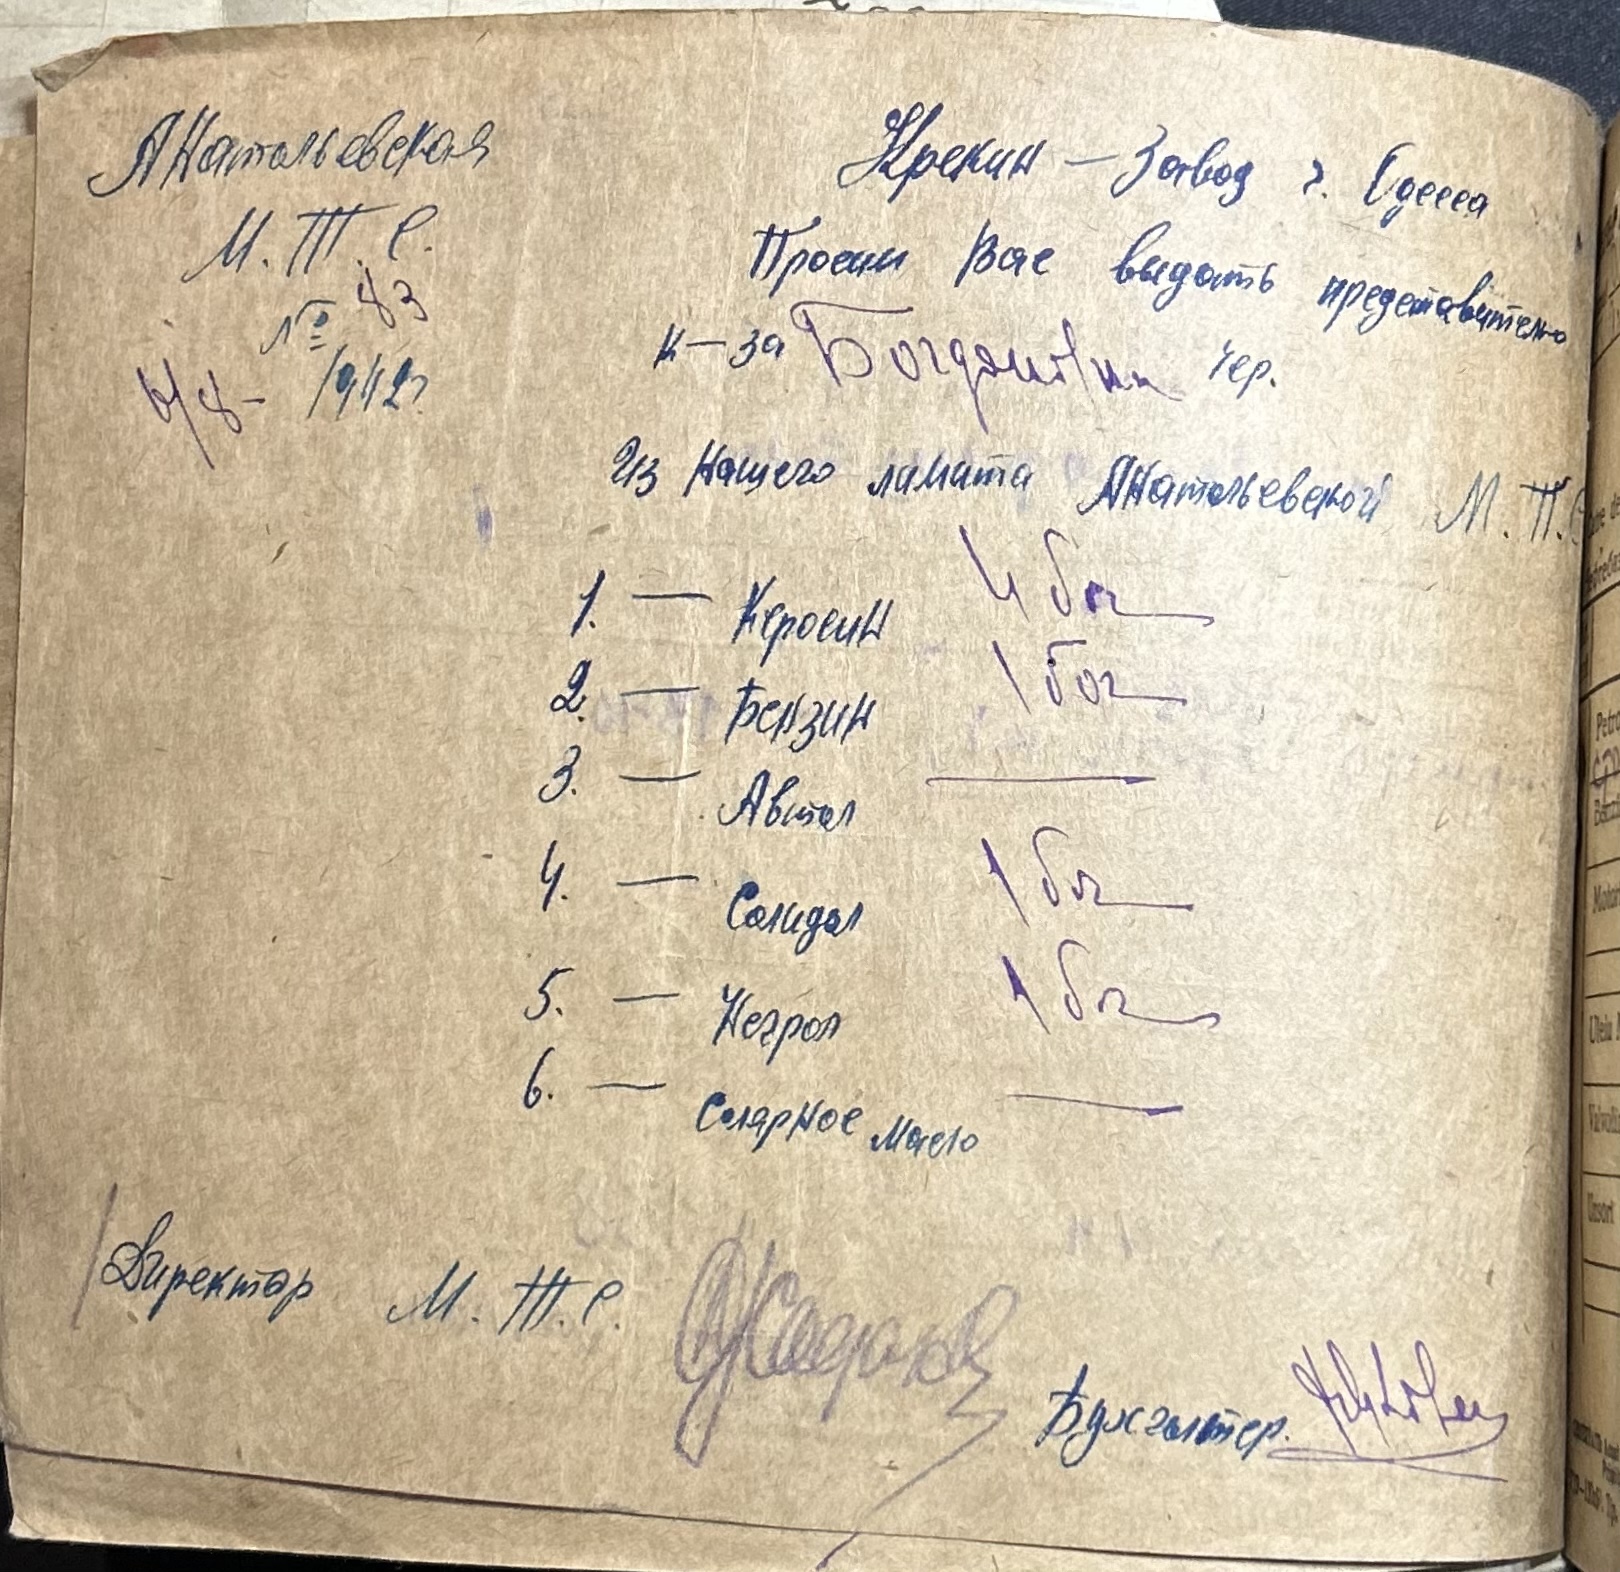 Анатольевская
М. Т. С.
№ 83
6/8 - 1942г
Крекин — Завод г. Одесса
Просим Вас выдать представителю
к-за Чер.
Из Нашего лимита Анатольевской М. Т. С
1. — Керосин 4 боч
2. — Бензин 1 боч
3. — Автол —
4. — Солидол 1 боч
5. — Негрол 1 боч
6. — Солярное масло —
Директор М. Т. С.
Бухгалтер.
Petro
Motor
Uleiu
Unsori